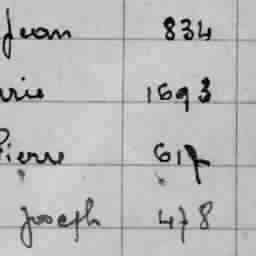 Jean 834
rie 1693
Pierre 617
Joseph 478